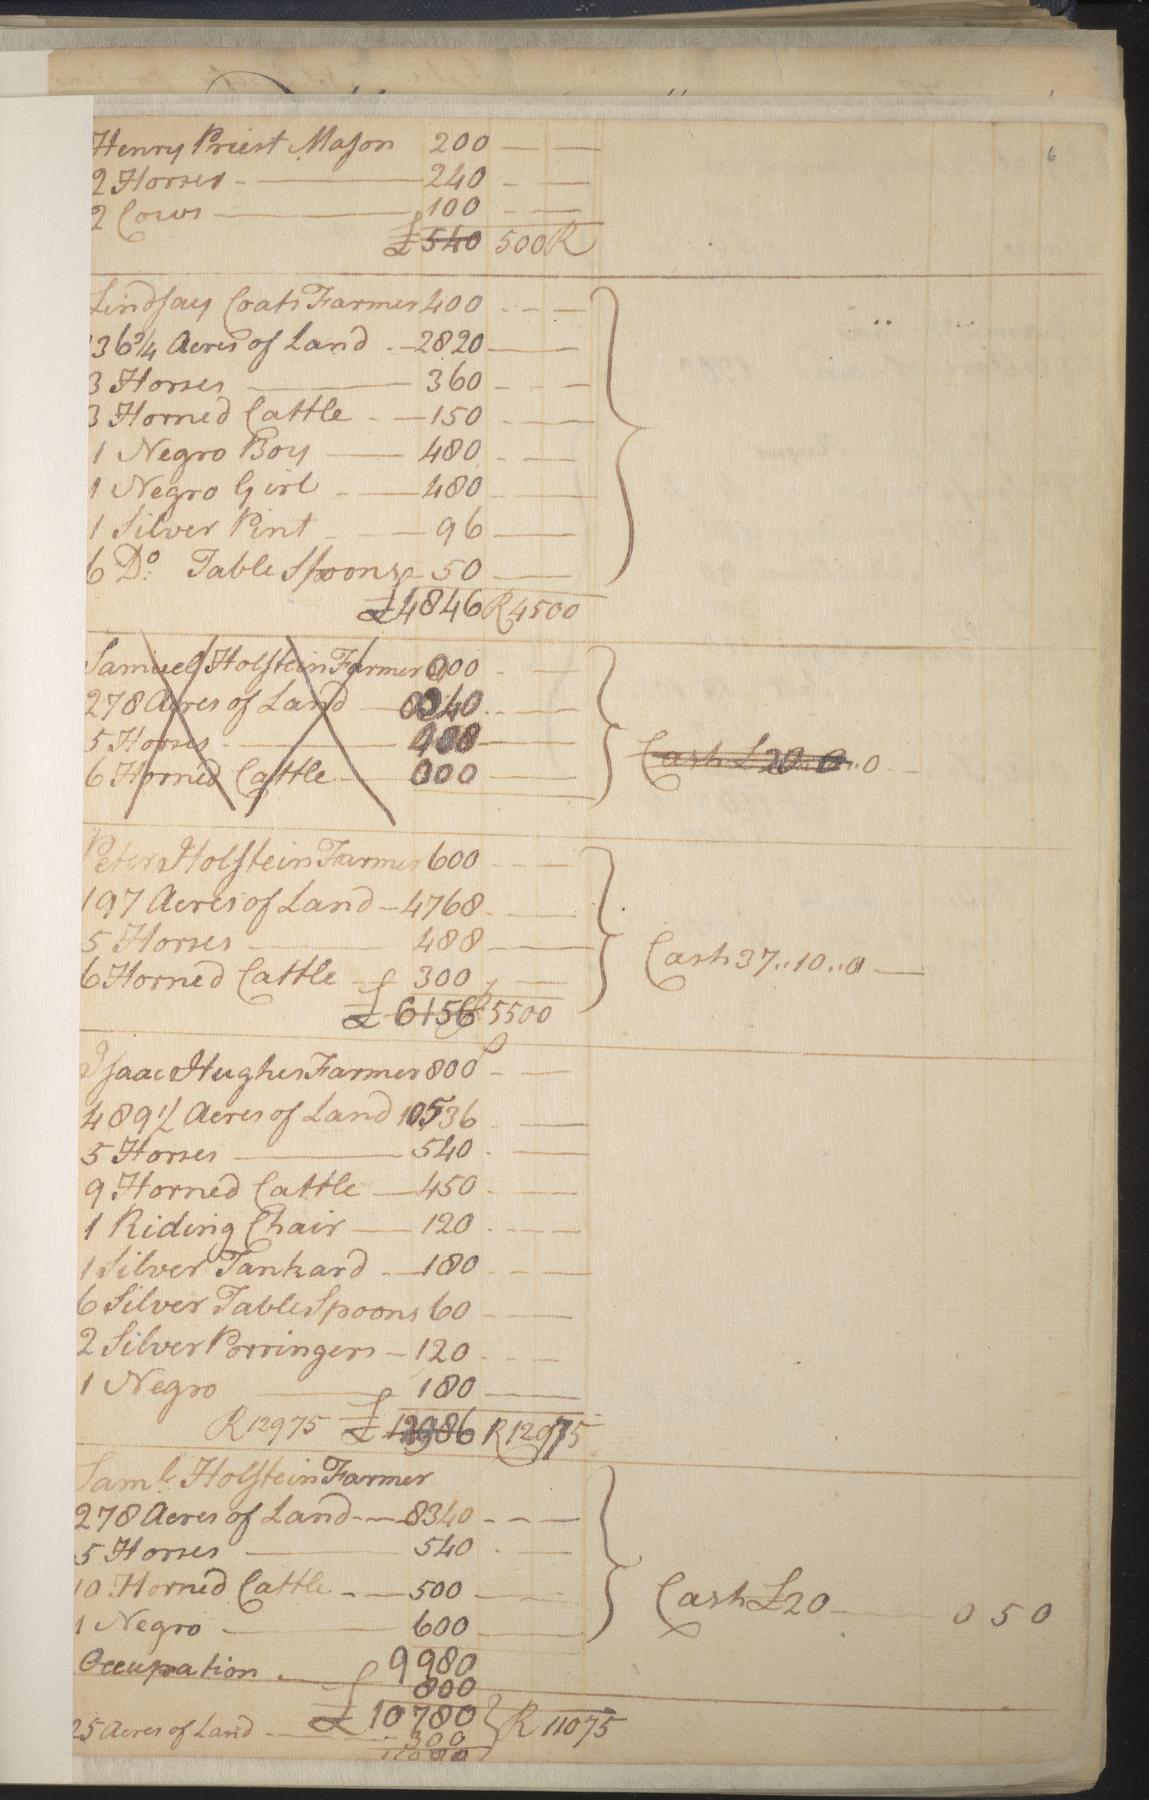 6
Henry Priest Mason 200
2 Horses 240
2 Cows 100
£ 540 500 R
Lindsay Coats Farmer 400
136 3/4 Acres of Land 2820
3 Horses 360
3 Horned Cattle 150
1 Negro Boy 480
1 Negro Girl 480
1 Silver Pint 96
6 Do. Table Spoons 50
£4846 R4500
Samuel Holstein Farmer 000
278 Acres of Land
5 Horses
6 Horned Cattle 000
Cash £20..0..0
Peter Holstein Farmer 600
197 Acres of Land 4768
5 Horses 488
6 Horned Cattle 300
Cash 37..10..0
£ 6156 R 5500
Isaac Hughes Farmer 800
489 1/2 Acres of Land 10536
5 Horses 540
9 Horned Cattle 450
1 Riding Chair 120
1 Silver Tankard 180
6 Silver Table Spoons 60
2 Silver Porringers 120
1 Negro 180
R12975 £ 12986 R12975
Saml. Holstein Farmer
278 Acres of Land 8340
5 Horses 540
10 Horned Cattle 500
1 Negro 600
Cash £20 0 5 0
9980
Occupation 800
£ 10780 R 11075
25 Acres of Land 300